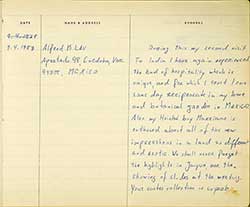 DATE NAME & ADDRESS REMARKS
9.4.1983 Alfred B. Lau
Apartado 98, Cordoba, Ver.
94500, MEXICO
During this my second visit
to India I have again experienced
the kind of hospitality, which is
unique, and for which I could
some day reciprocate in my home
and botanical garden in MEXICO.
Also my
enthused about all of the new
impressions in a land so different
and exotic. We shall never forget
the highlights in Jaipur and the
showing of slides at the meeting.
Your cactus collection is superb.